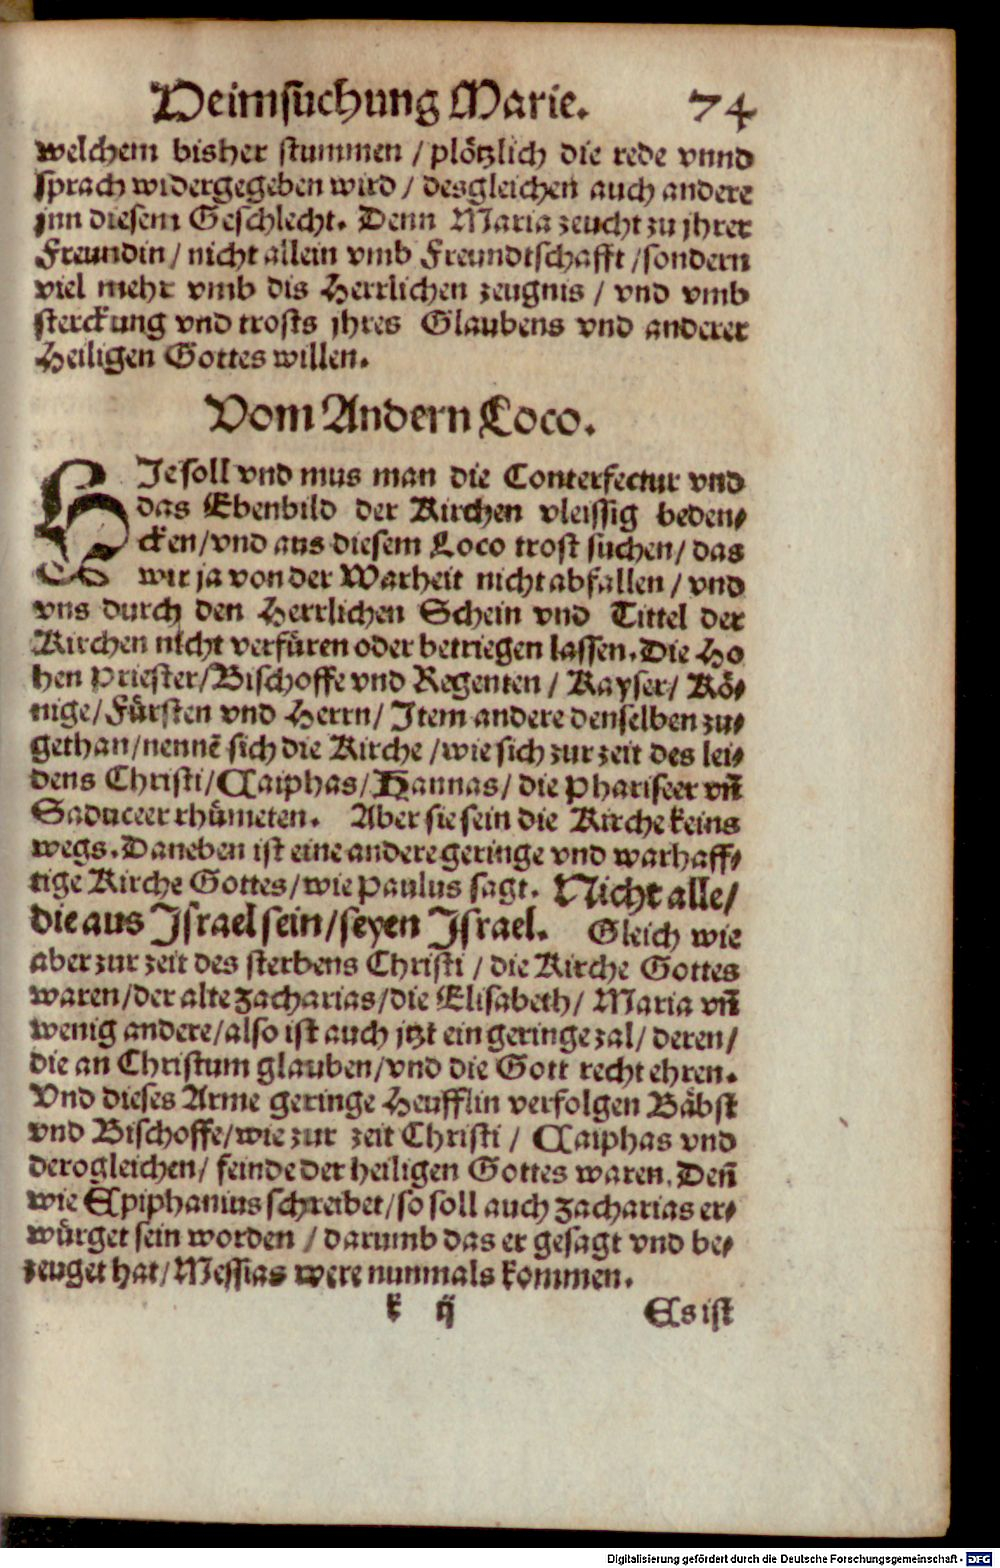 Heimsuchung Marie. 74
welchem bisher stummen / plötzlich die rede vnnd
sprach widergegeben wird / desgleichen auch andere
jnn diesem Geschlecht. Denn Maria zeucht zu jhrer
Freundin / nicht allein vmb Freundtschafft / sondern
viel mehr vmb dis Herrlichen zeugnis / vnd vmb
sterckung vnd trosts jhres Glaubens vnd anderer
Heiligen Gottes willen.
Vom Andern Loco.
HIe soll vnd mus man die Conterfectur vnd
das Ebenbild der Kirchen vleissig beden⸗
cken / vnd aus diesem Loco trost suchen / das
wir ja von der Warheit nicht abfallen / vnd
vns durch den Herrlichen Schein vnd Tittel der
Kirchen nicht verfüren oder betriegen lassen. Die Ho
hen Priester / Bischoffe vnd Regenten / Kayser / Kö⸗
nige / Fürsten vnd Herrn / Item andere denselben zu⸗
gethan / nennē sich die Kirche / wie sich zur zeit des lei⸗
dens Christi / Caiphas / Hannas / die Phariseer vñ
Saduceer rhümeten. Aber sie sein die Kirche keins
wegs. Daneben ist eine andere geringe vnd warhaff⸗
tige Kirche Gottes / wie Paulus sagt. Nicht alle /
die aus Israel sein / seyen Israel. Gleich wie
aber zur zeit des sterbens Christi / die Kirche Gottes
waren / der alte Zacharias / die Elisabeth / Maria vñ
wenig andere / also ist auch jtzt ein geringe zal / deren /
die an Christum glauben / vnd die Gott recht ehren.
Vnd dieses Arme geringe Heufflin verfolgen Bäbst
vnd Bischoffe / wie zur zeit Christi / Caiphas vnd
derogleichen / feinde der heiligen Gottes waren. Deñ
wie Epiphanius schreibet / so soll auch Zacharias er⸗
würget sein worden / darumb das er gesagt vnd be⸗
zeuget hat / Messias were nunmals kommen.
k ij Es ist
Digitalisierung gefördert durch die Deutsche Forschungsgemeinschaft - DFG